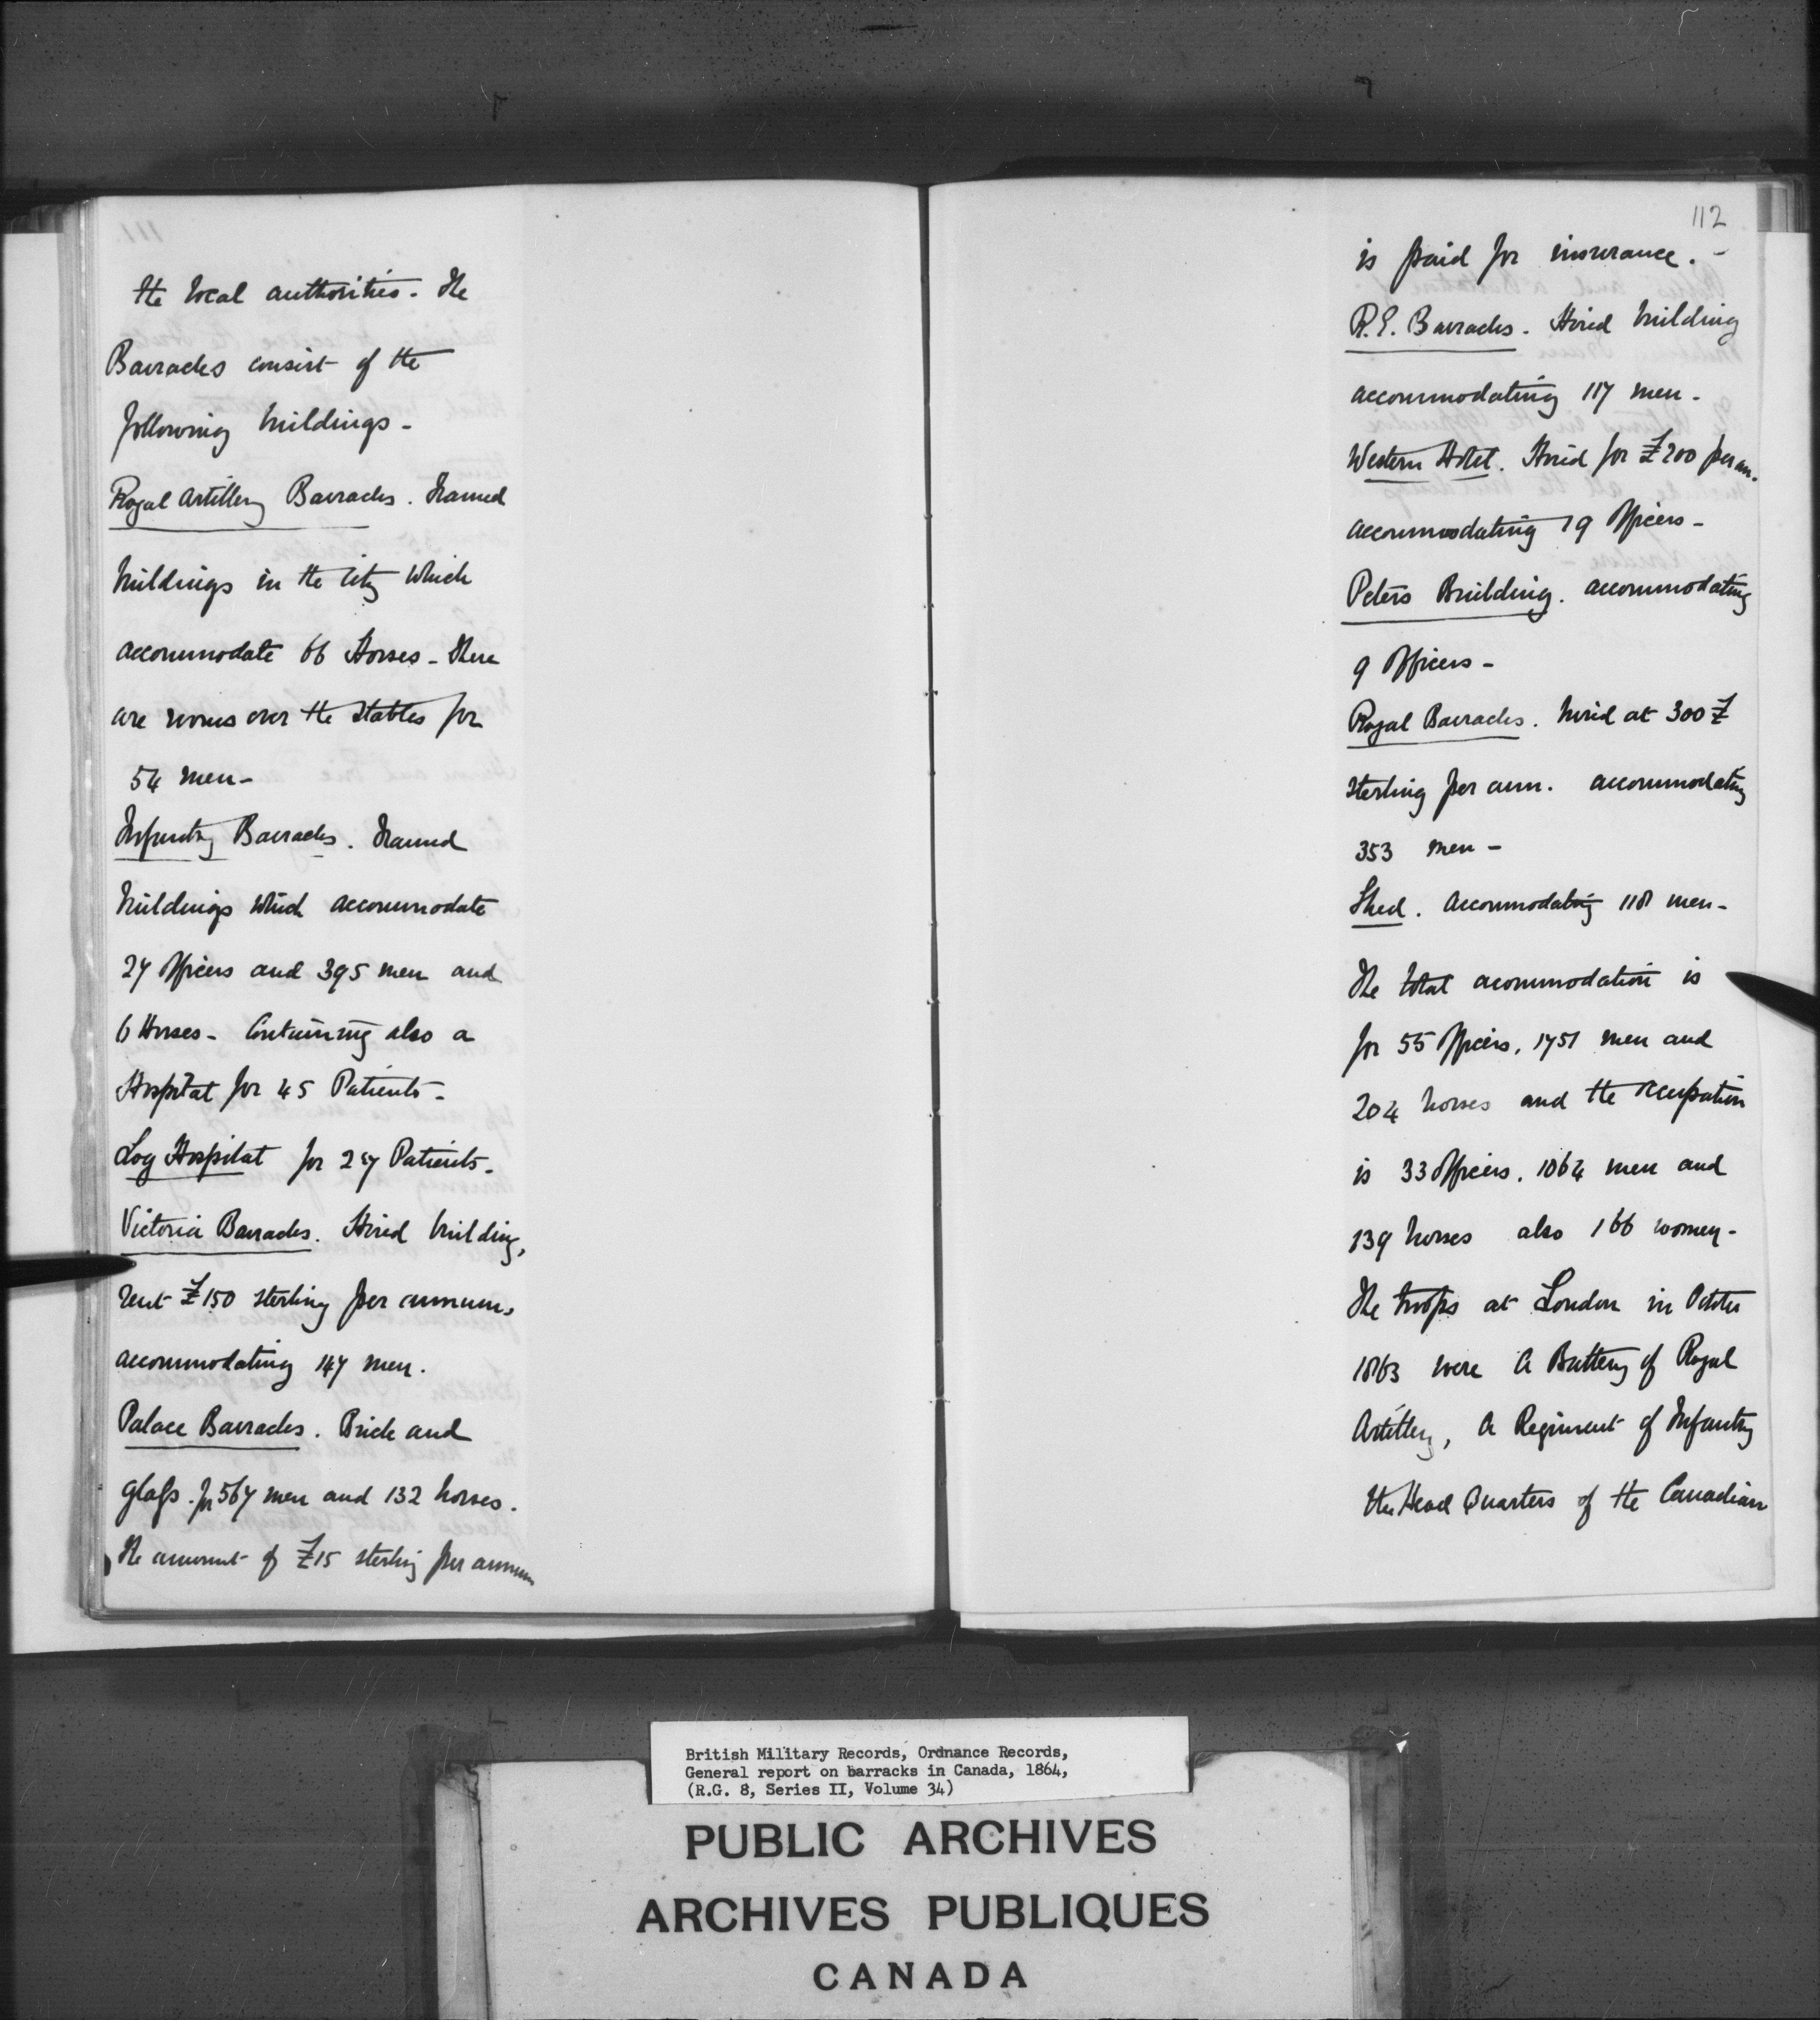 111.
the local authorities. The
Barracks consist of the
following buildings -
Royal Artillery Barracks. Framed
buildings in the City which
accommodate 66 Horses - There
are rooms over the stables for
54 men -
Infantry Barracks. Framed
buildings which accommodate
27 Officers and 395 men and
6 Horses - Containing also a
Hospital for 45 Patients -
Log Hospital for 27 Patients.
Victoria Barracks. Hired building,
rent £150 sterling per annum,
accommodating 147 men.
Palace Barracks. Brick and
glass. for 567 men and 132 horses.
The amount of £15 sterling per annum
112
is paid for insurance. -
R.E. Barracks. Hired building
accommodating 117 men -
Western Hotel. Hired for £200 per an.
accommodating 19 Officers -
Peters Building. accommodating
9 Officers -
Royal Barracks. hired at 300 £
sterling per ann. accommodating
353 men -
Shed. Accommodating 118 men -
The total acommodation is
for 55 Officers, 1751 men and
204 horses and the occupation
is 33 Officers, 1064 men and
139 horses also 166 women -
The troops at London in October
1863 were A Battery of Royal
Artillery, A Regiment of Infantry
the Head Quarters of the Canadian
British Military Records, Ordnance Records,
General report on barracks in Canada, 1864,
(R.G. 8, Series II, Volume 34)
PUBLIC ARCHIVES
ARCHIVES PUBLIQUES
CANADA